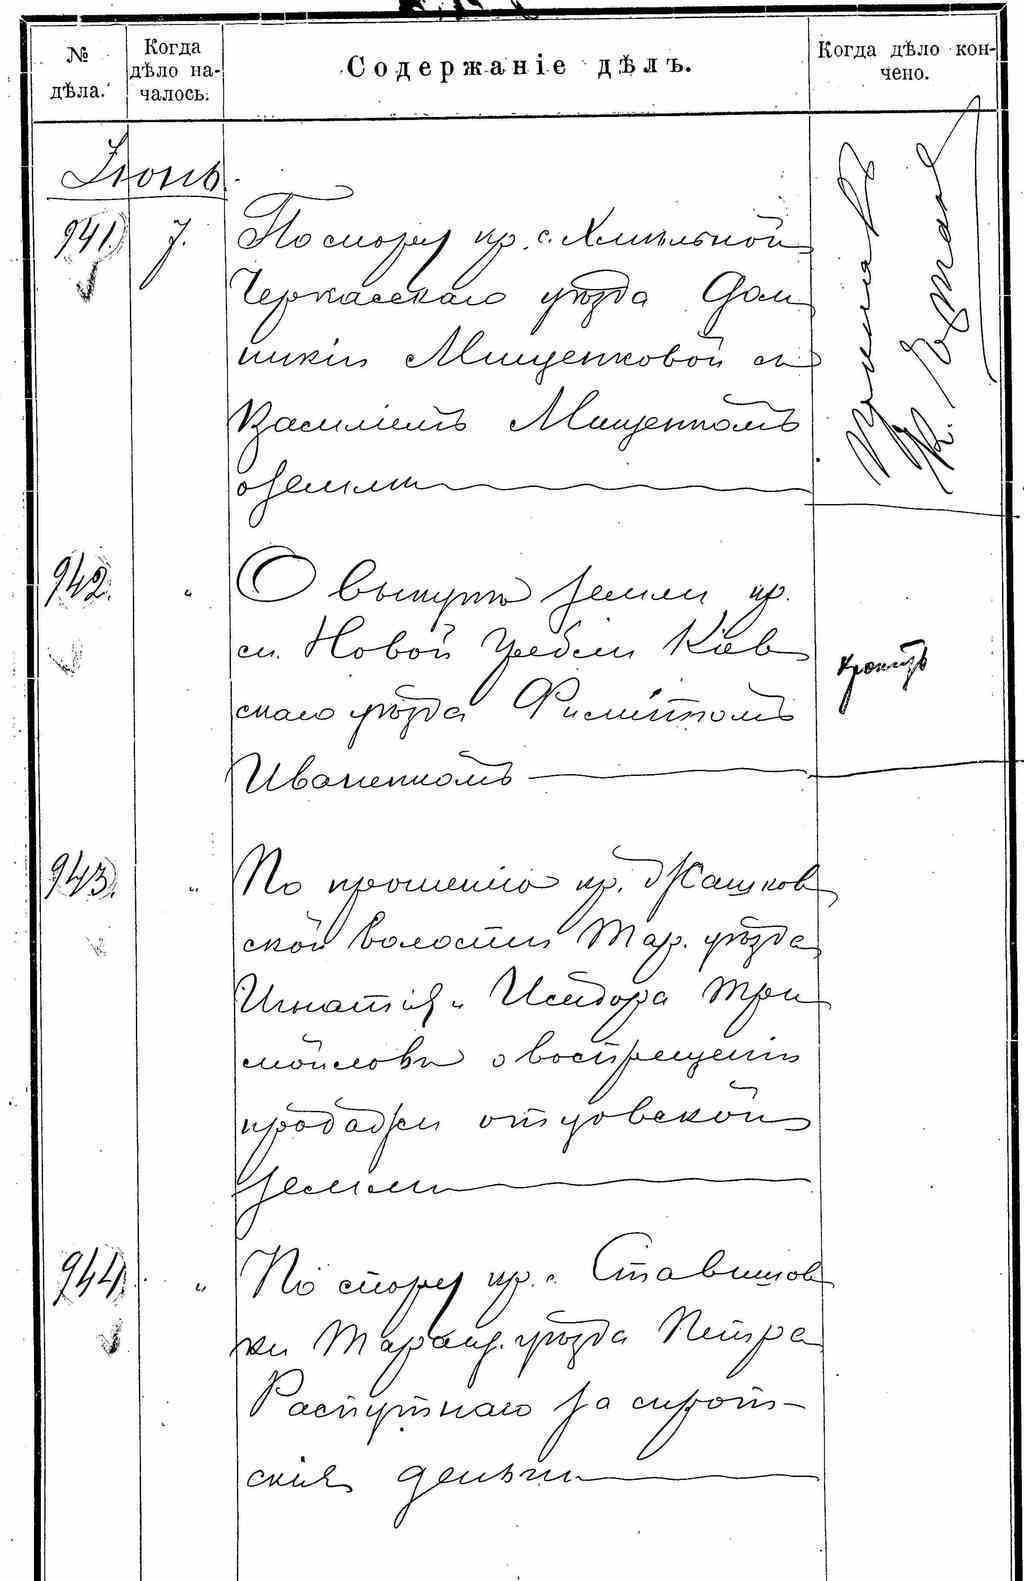 № дѣла.
Когда дѣло началось.
Содержаніе дѣлъ.
Когда дѣло кончено.
Іюнь.
941. 7. По спору кр. с. Хмѣльной
Черкасскаго уѣзда Дом
никіи Мищенковой съ
Василіемъ Мищенкомъ
о землѣ
942. " О выкупѣ земли кр.
с. Новой Гребли Кіев
скаго уѣзда Филиппомъ
Иваненкомъ
943. " По прошенію кр. Жашков
ской волости Тар. уѣзда
Игнатія и Исидора
о воспрещеніи
продажи отцовской
земли
944. " По спору кр. с. Ставищов
ки Таращ. уѣзда Петра
Распутнаго за сирот-
скія деньги